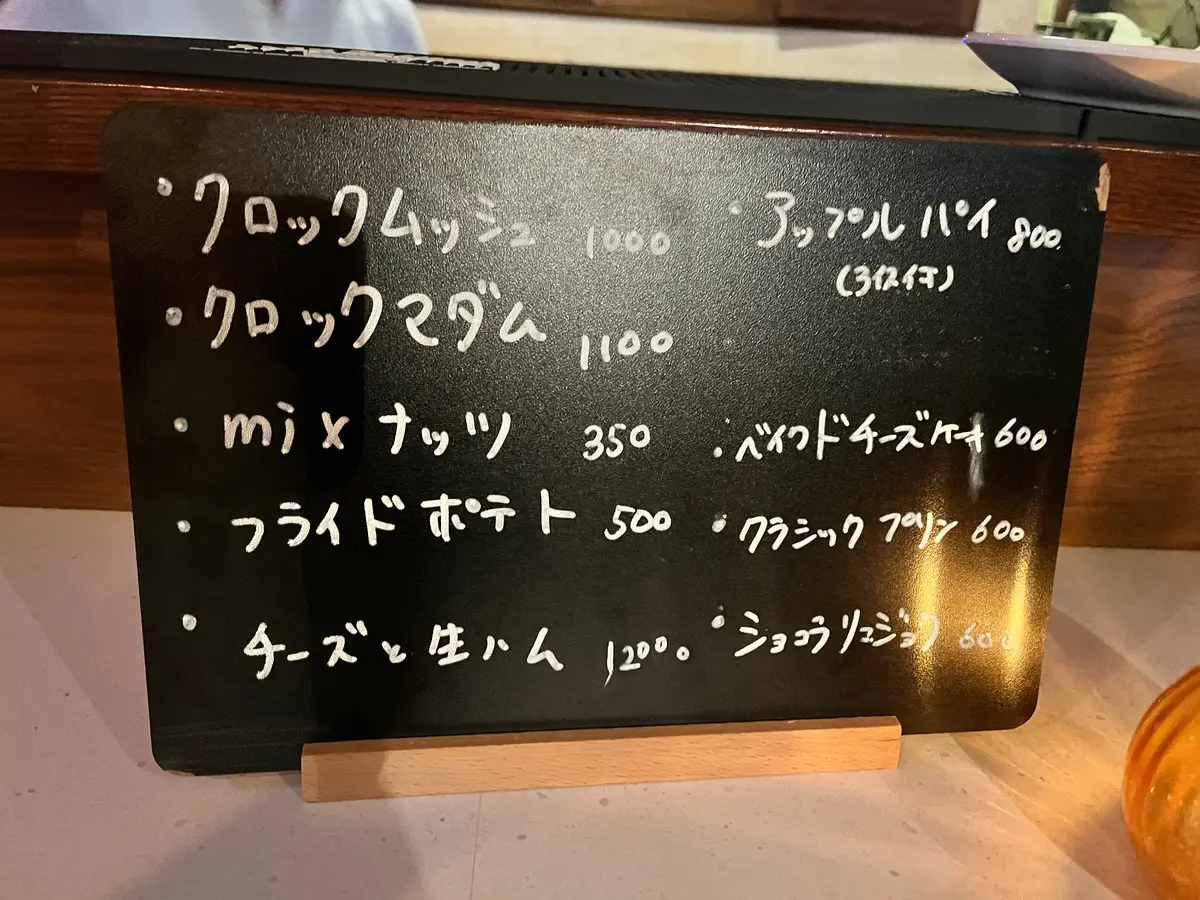 ・クロックムッシュ 1000
・クロックマダム 1100
・mixナッツ 350
・フライドポテト 500
・チーズと生ハム 1200
・アップルパイ 800
(アイス付)
・ベイクドチーズケーキ 600
・クラシックプリン 600
・ショコラ 600